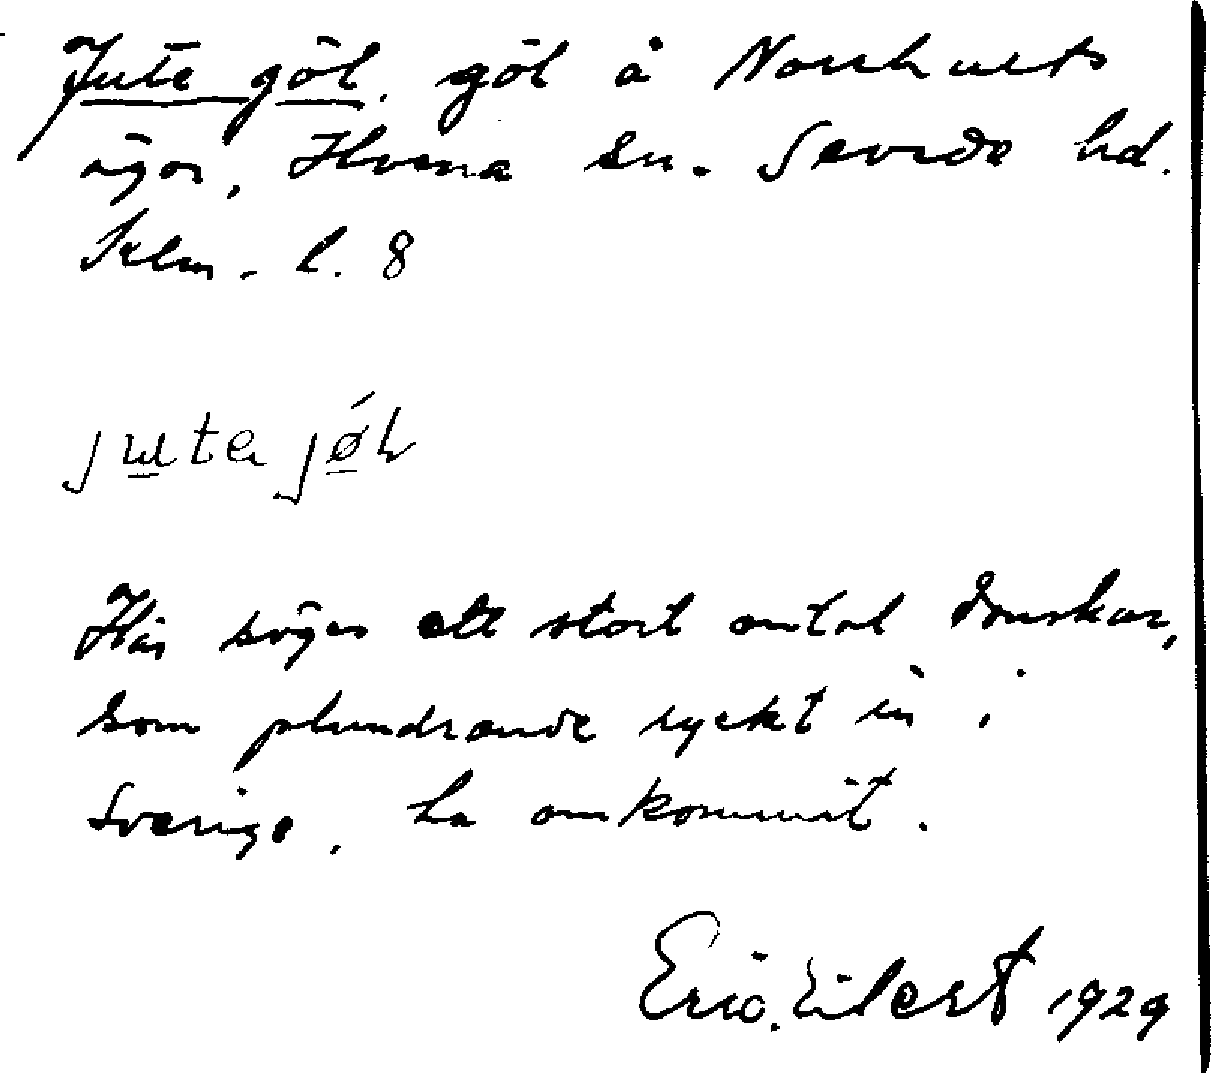 Jute göl. göl å Norrhults
ägor, Hvena sn. Sevede hd.
Klm. l. 8
juta jöl
Här säges ett stort antal danskar,
som plundrande ryckt in i
Sverige, ha omkommit.
Eric. Eilert 1929